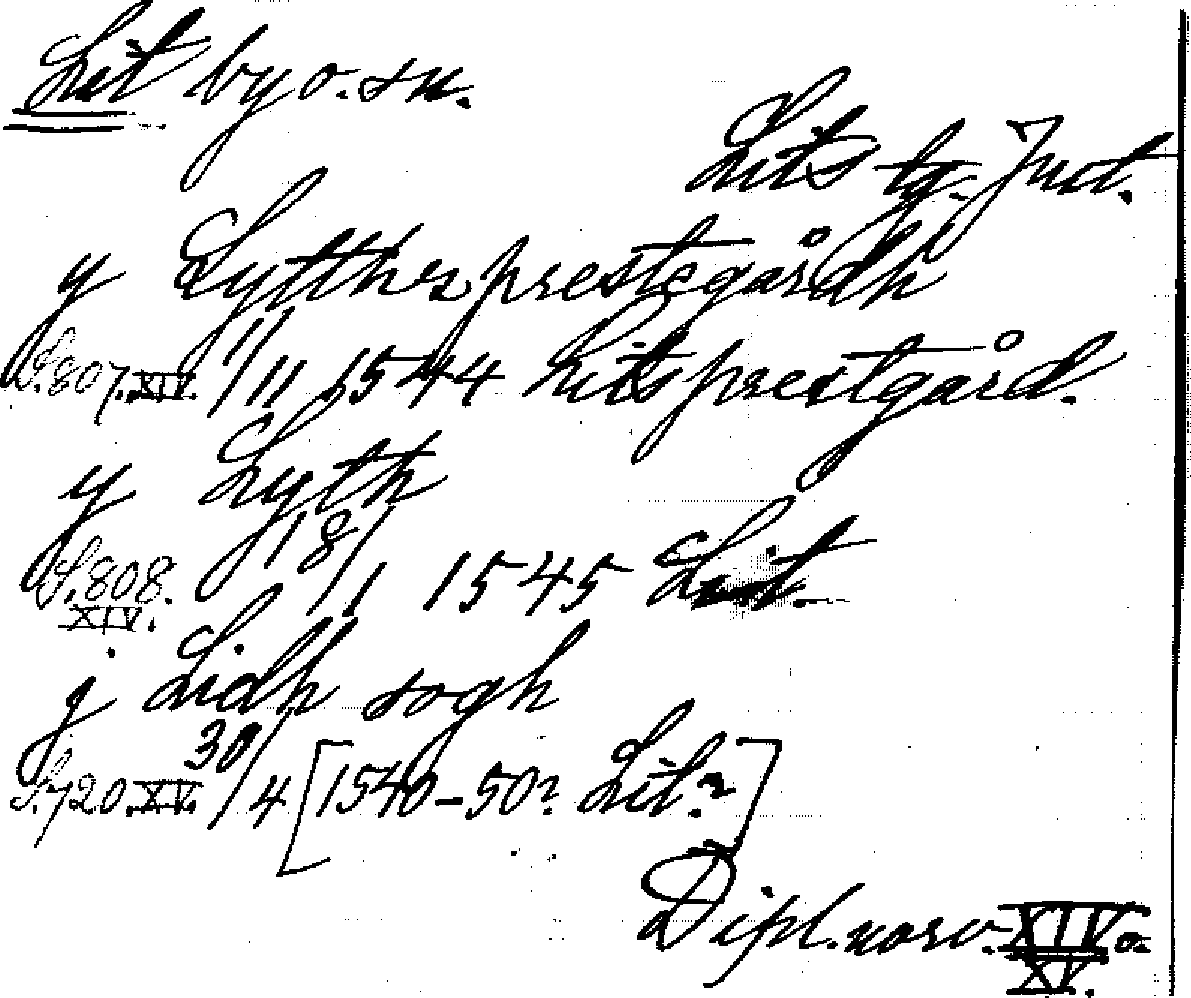 Lit by o. sn.
Lits tg. Jmt.
y Lytthes prestegårdh
S. 807. XIV. 11/11 1544 Lits prestgård.
y Lyth
S. 808. XIV. 18/1 1545 Lit.
j Lidh sogh
S. 720. XV. 30/4 [1540-50? Lit.?]
Dipl. norv. XIV o.
XV.